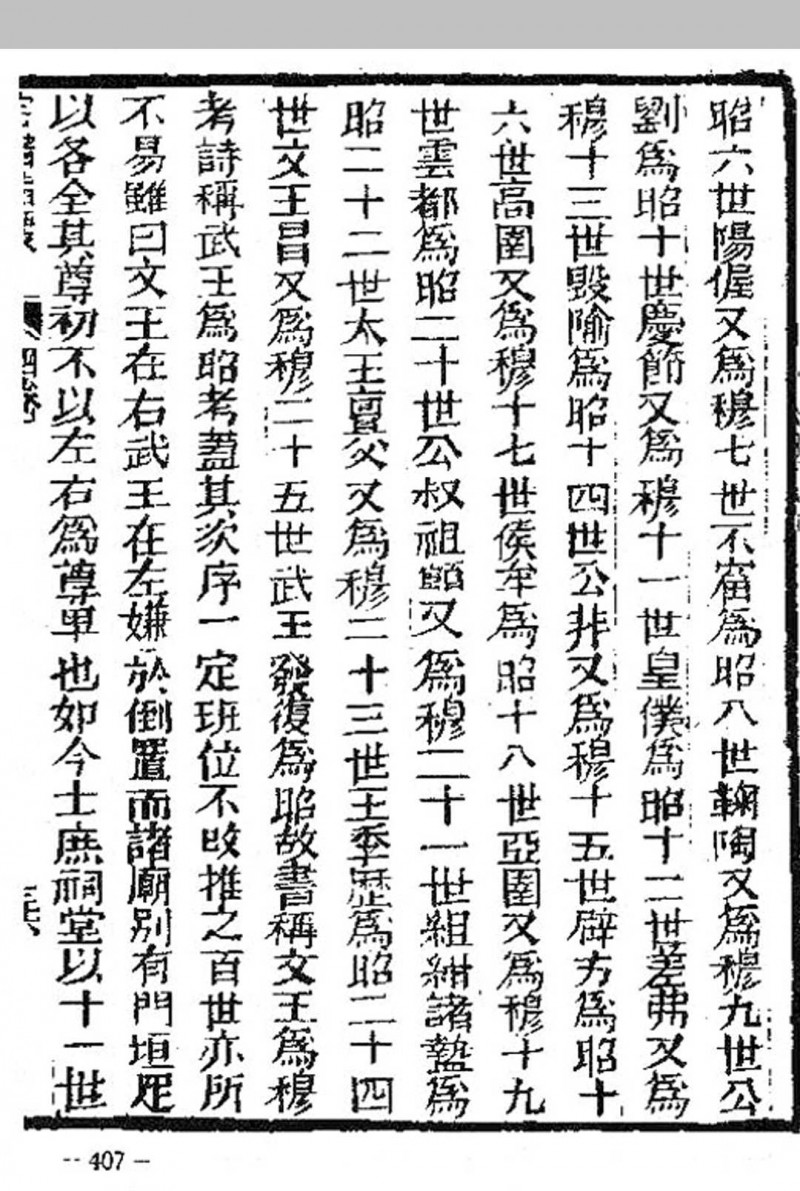 昭六世陽偓又爲穆七世不窋爲昭八世鞠陶又爲穆九世公
劉爲昭十世慶節又爲穆十一世皇僕爲昭十二世差弗又爲
穆十三世毀隃爲昭十四世公非又爲穆十五世辟方爲昭十
六世高圉又爲穆十七世侯牟爲昭十八世亞圉又爲穆十九
世雲都爲昭二十世公叔祖節又爲穆二十一世組紺諸盩爲
昭二十二世太王亶父又爲穆二十三世王季歷爲昭二十四
世文王昌又爲穆二十五世武王發復爲昭故書稱文王爲穆
考詩稱武王爲昭考蓋其次序一定班位不改推之百世亦所
不易雖曰文王在右武王在左嫌於倒置而諸廟別有門垣足
以各全其尊初不以左右爲尊卑也如今士庶祠堂以十一世
四卷
-- 407 --